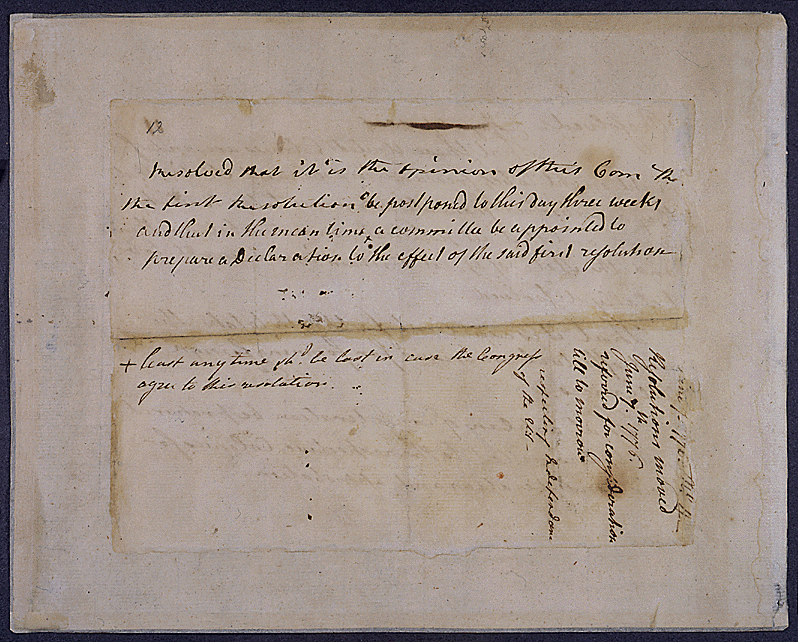 12
Resolved that it is the opinion of this Com. that
the first Resolution be postponed to this day three weeks
and that in the mean time + a committee be appointed to
prepare a Declaration to the effect of the said first resolution
+ least any time shd. be lost in case the Congress
agree to this resolution.
Resolutions moved
June 7th. 1776.
referred for consideration
till to morrow
respecting Independence
of the